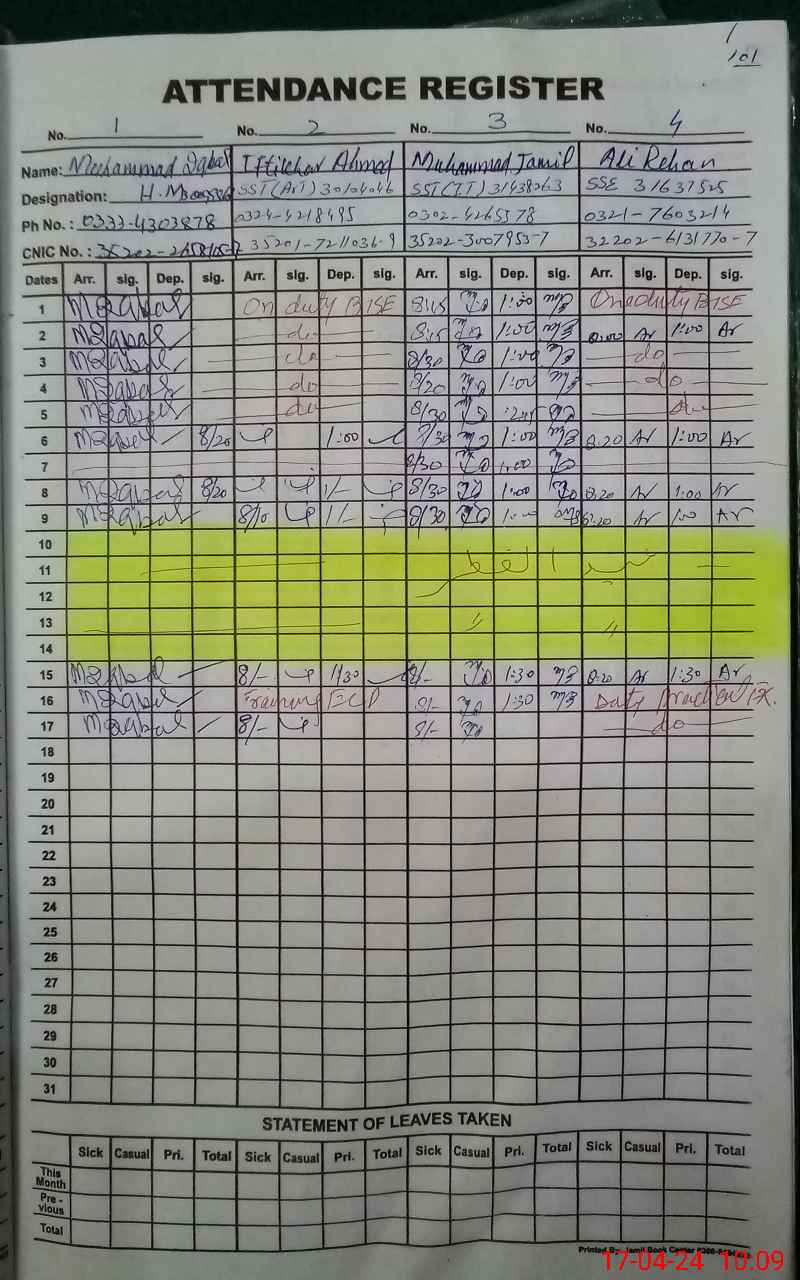 101
ATTENDANCE REGISTER
No. 1 No. 2 No. 3 No. 4
Name: Muhammad Iqbal Iftikhar Ahmed Muhammad Jamil Ali Rehan
Designation: SST (ArT) 30104046 SST (IT) 31438263 SSE 31637525
Ph No.: 0333-4303878 0324-4218495 0302-4265378 0321-7603214
CNIC No.: 35201-7211036-9 35202-3007953-7 32202-6131770-7
Dates Arr. sig. Dep. sig. Arr. sig. Dep. sig. Arr. sig. Dep. sig. Arr. sig. Dep. sig.
1 MIqbal On duty BISE 8:15 1:00 On duty BISE
2 MIqbal do 8:15 1:00 8:00 Ar 1:00 Ar
3 MIqbal do 8/30 1:00 do
4 MIqbal do 8/20 1:00 do
5 MIqbal do 8/30 do
6 MIqbal 8/20 1:00 7/30 1:00 8:20 Ar 1:00 Ar
7 8/30 1:00
8 MIqbal 8/20 1/- 8/30 1:00 8:20 Ar 1:00 Ar
9 MIqbal 8/10 1/- 8/30 8:20 Ar 1:00 Ar
10
11 عید الفطر
12
13 〃 〃
14
15 MIqbal 8/- 1/30 8/- 1:30 8:20 Ar 1:30 Ar
16 MIqbal Training ECP 8/- 1:30 Duty Practical IX.
17 MIqbal 8/- 8/- do
18
19
20
21
22
23
24
25
26
27
28
29
30
31
STATEMENT OF LEAVES TAKEN
Sick Casual Pri. Total Sick Casual Pri. Total Sick Casual Pri. Total Sick Casual Pri. Total
This Month
Pre-vious
Total
Printed By: Jamil Book Center
17-04-24 10:09